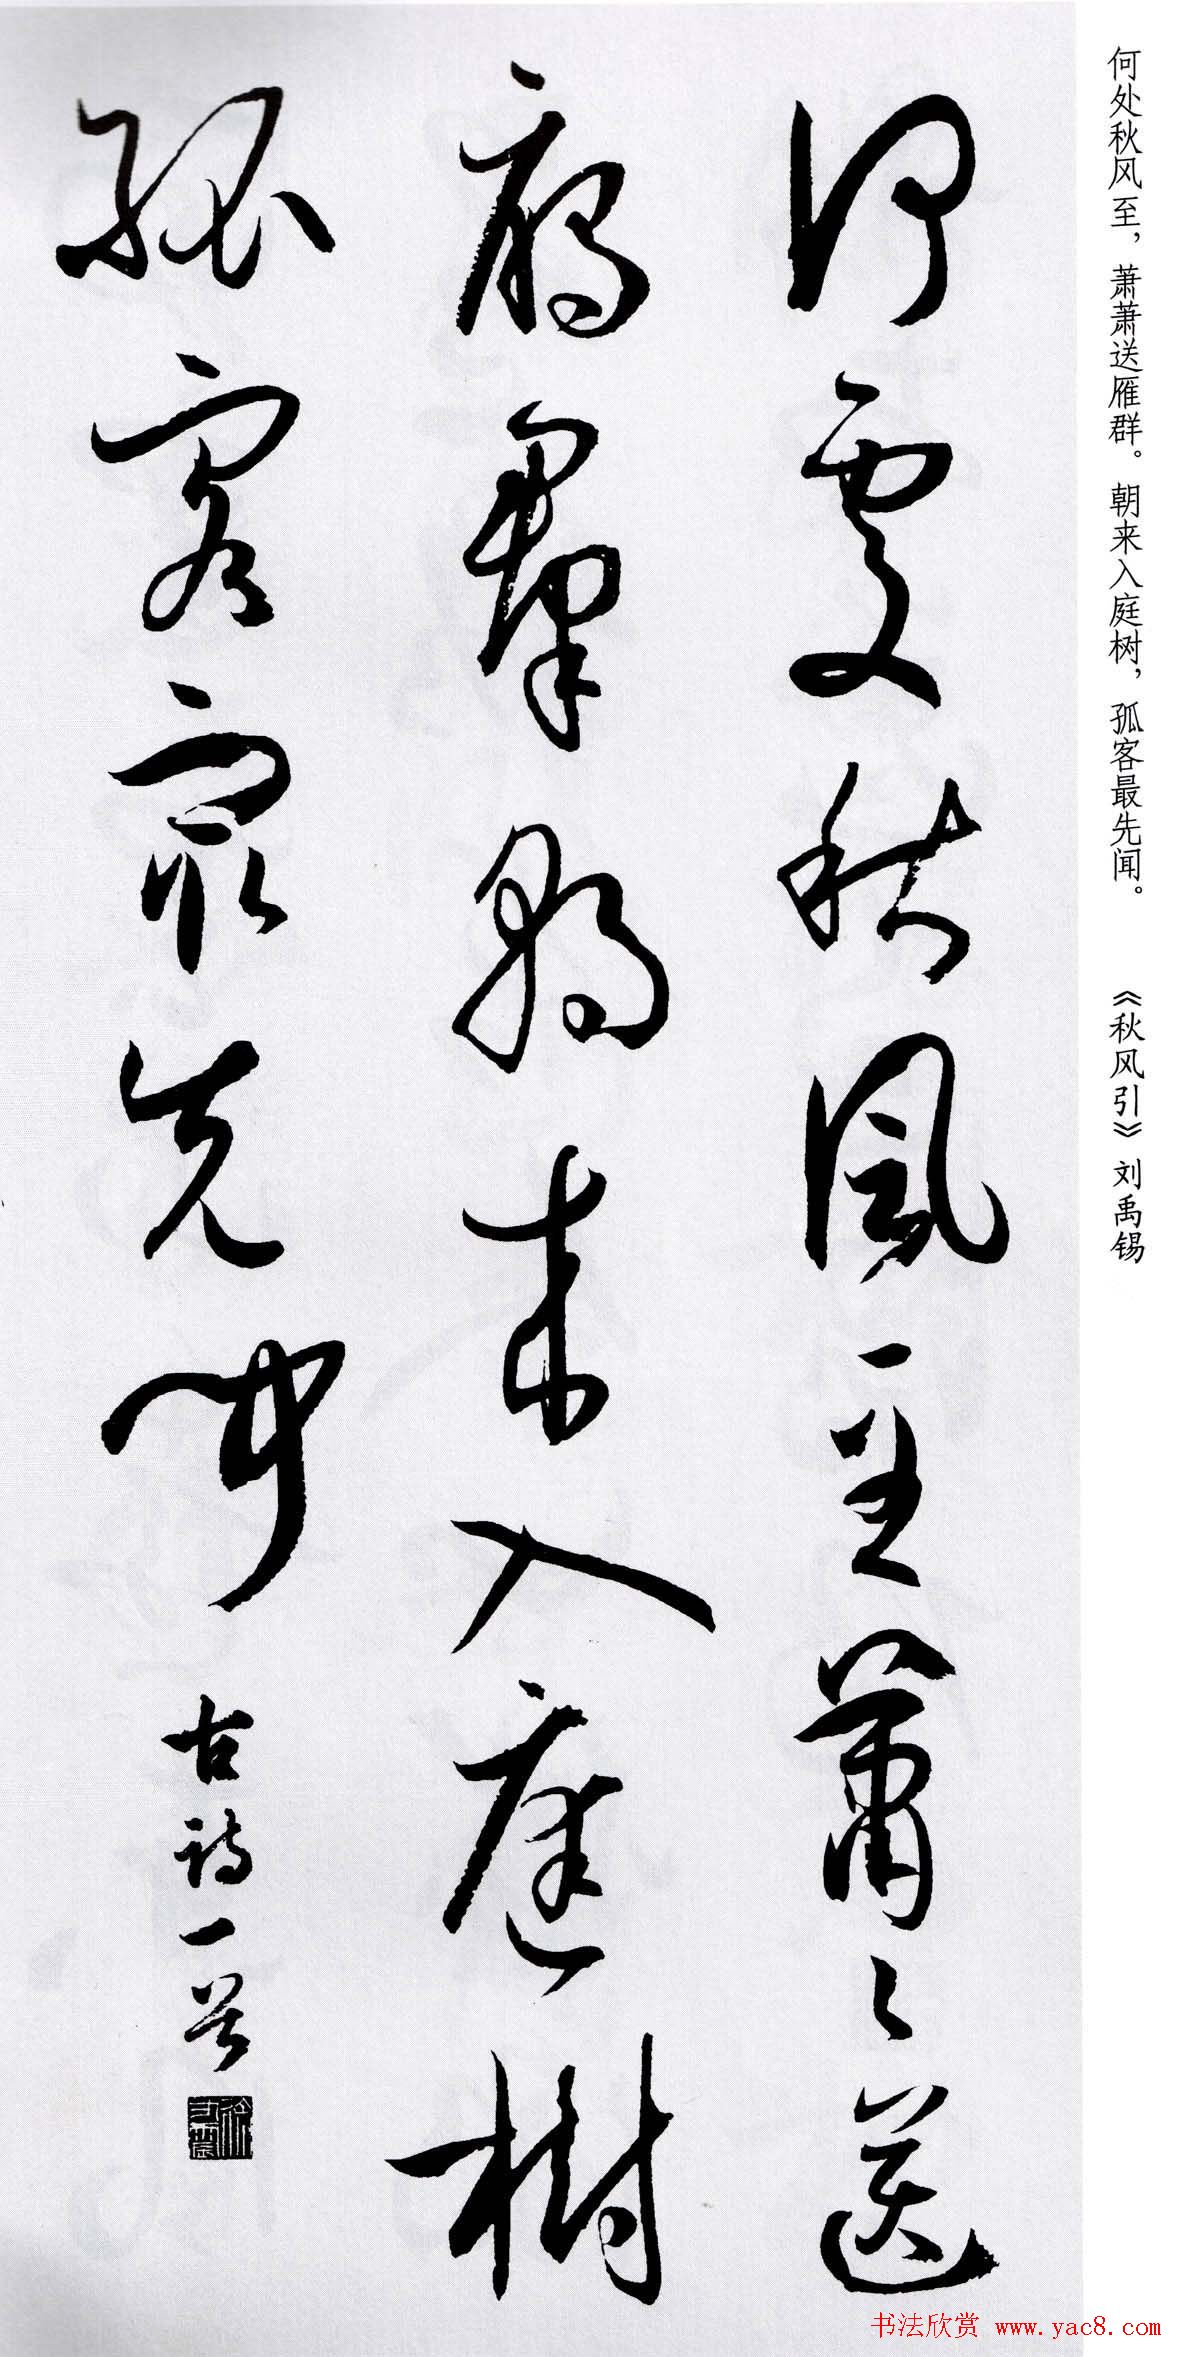 何处秋风至，萧萧送雁群。朝来入庭树，孤客最先闻。　《秋风引》刘禹锡
何處秋風至蕭々送
雁羣朝来入庭樹
孤客寂先聞
古詩一首
书法欣赏 www.yac8.com